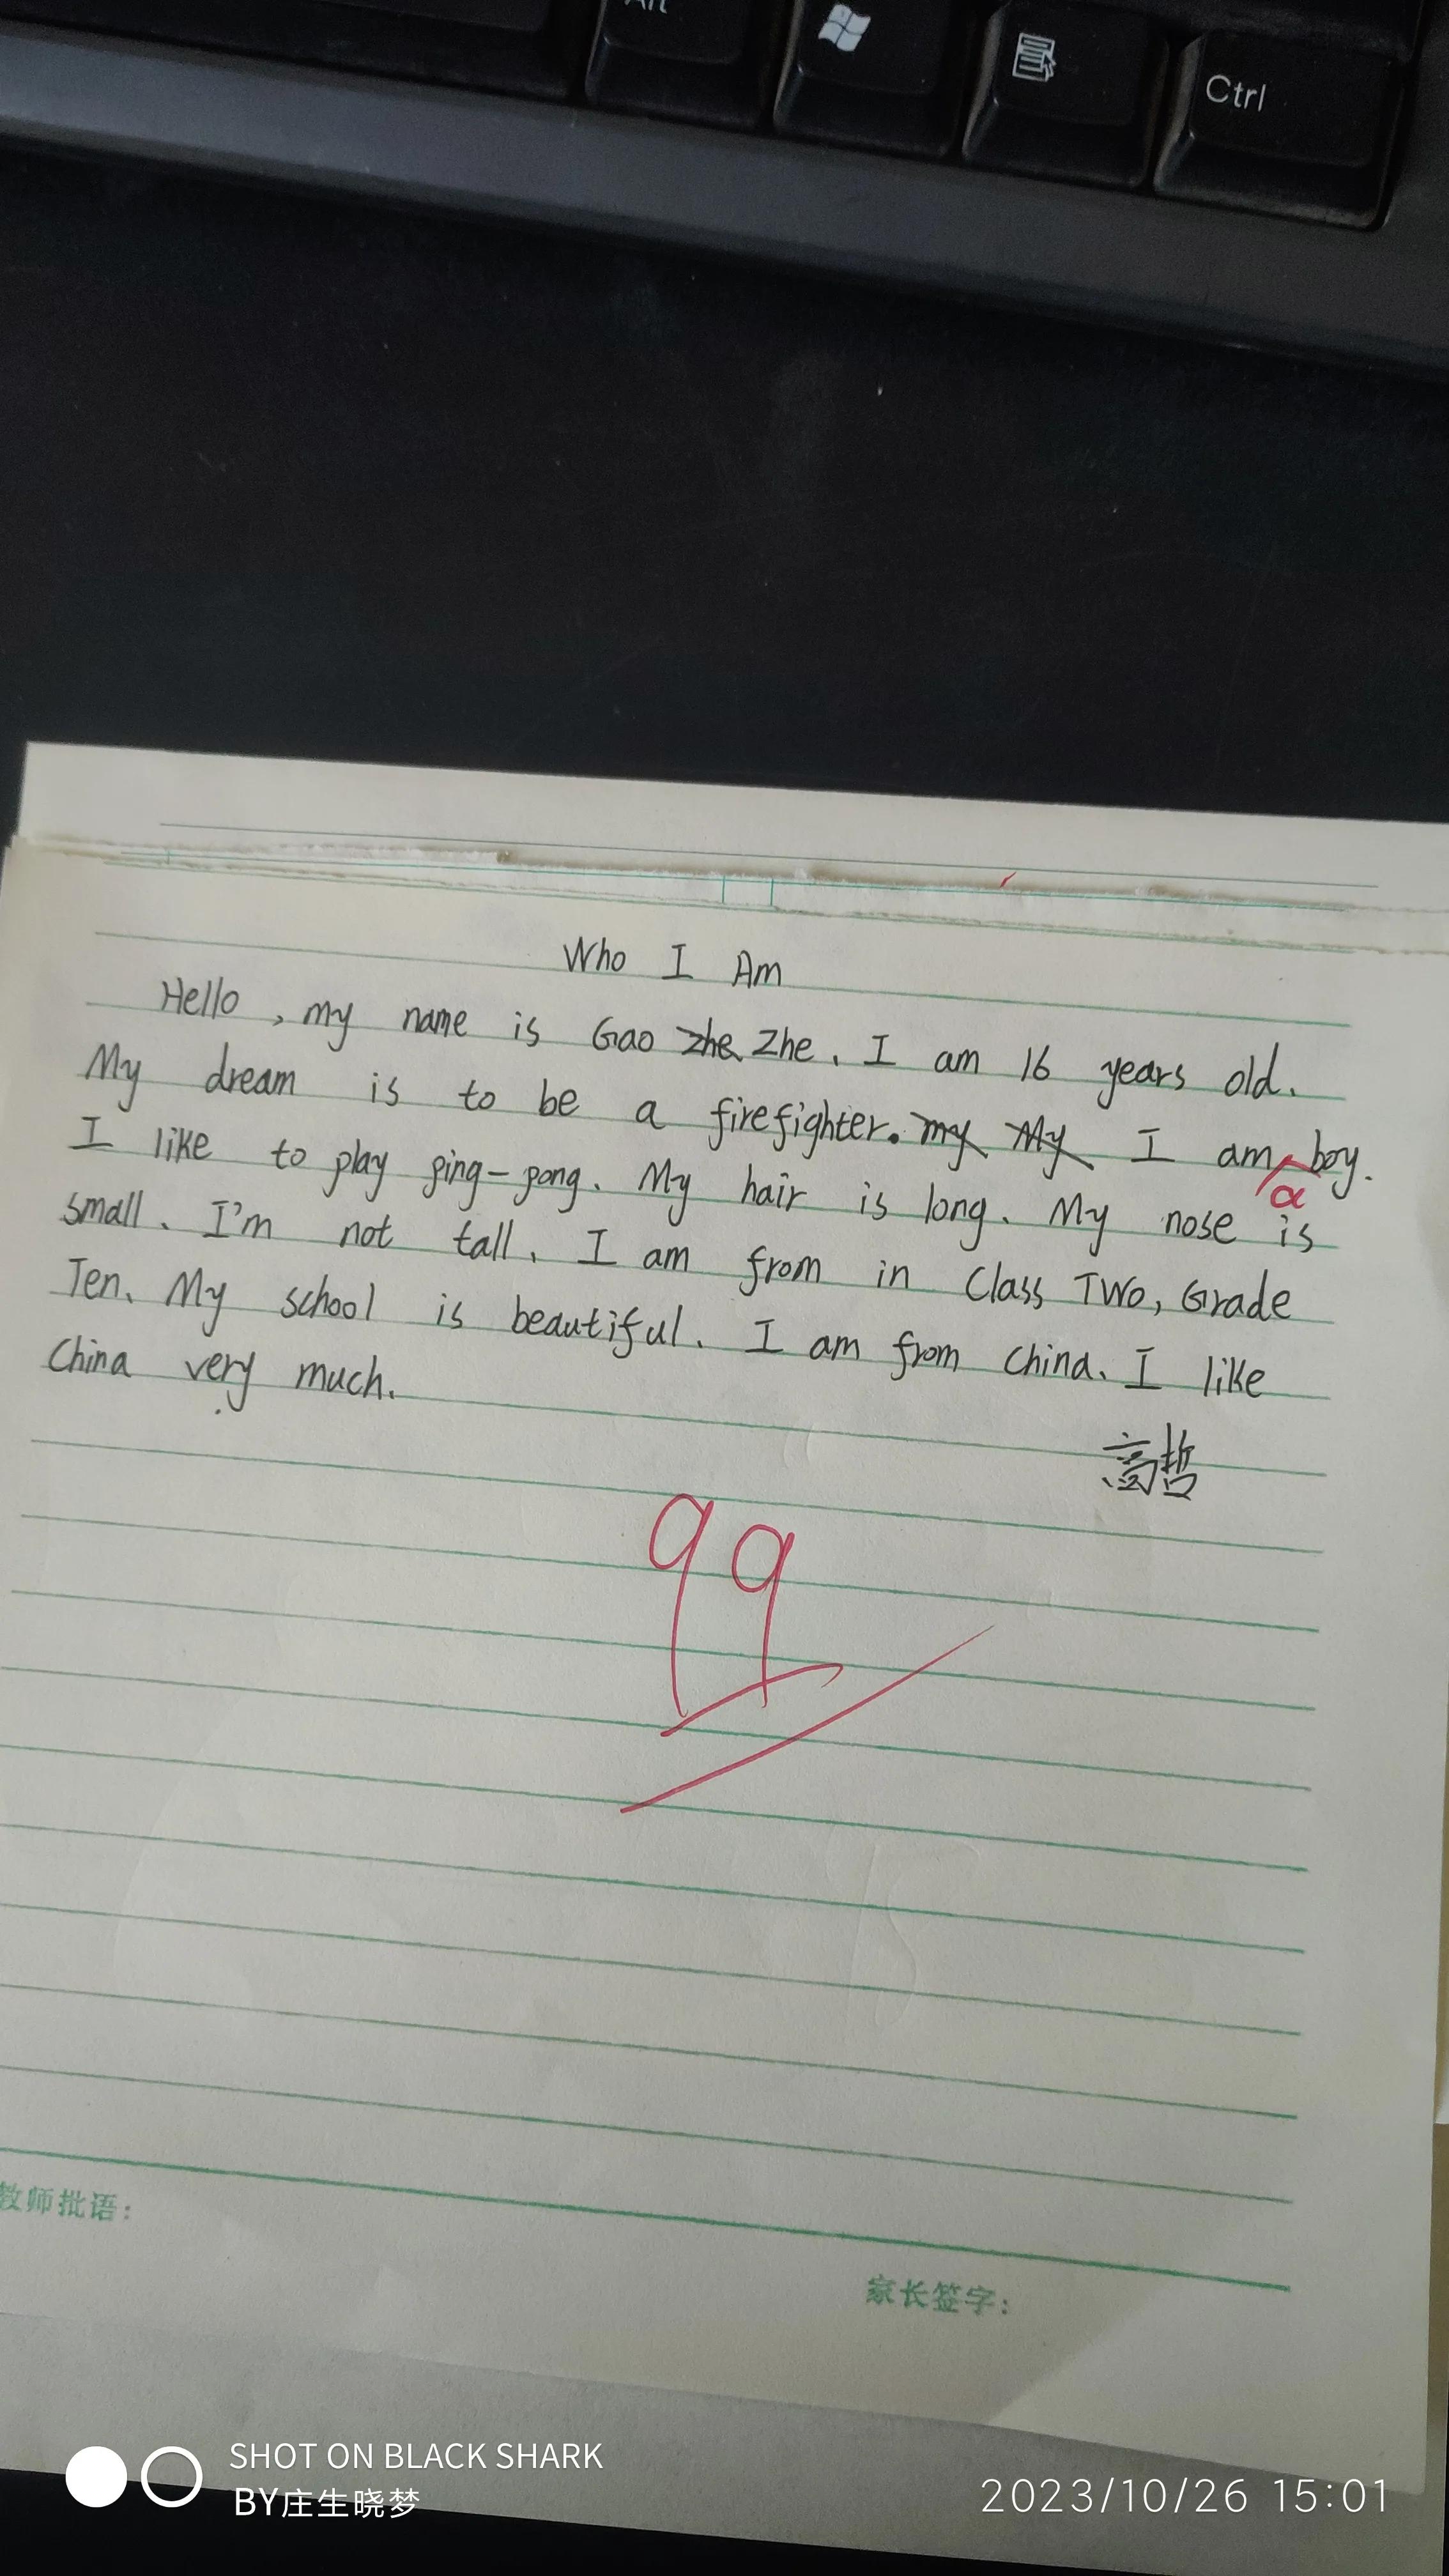 Alt
Ctrl
Who I Am
Hello, my name is Gao zhe Zhe. I am 16 years old.
My dream is to be a firefighter. my My I am a boy.
I like to play ping-pong. My hair is long. My nose is
small. I'm not tall. I am from in Class Two, Grade
Ten. My school is beautiful. I am from china. I like
China very much.
高哲
99
教师批语：
家长签字：
SHOT ON BLACK SHARK
BY庄生晓梦
2023/10/26 15:01